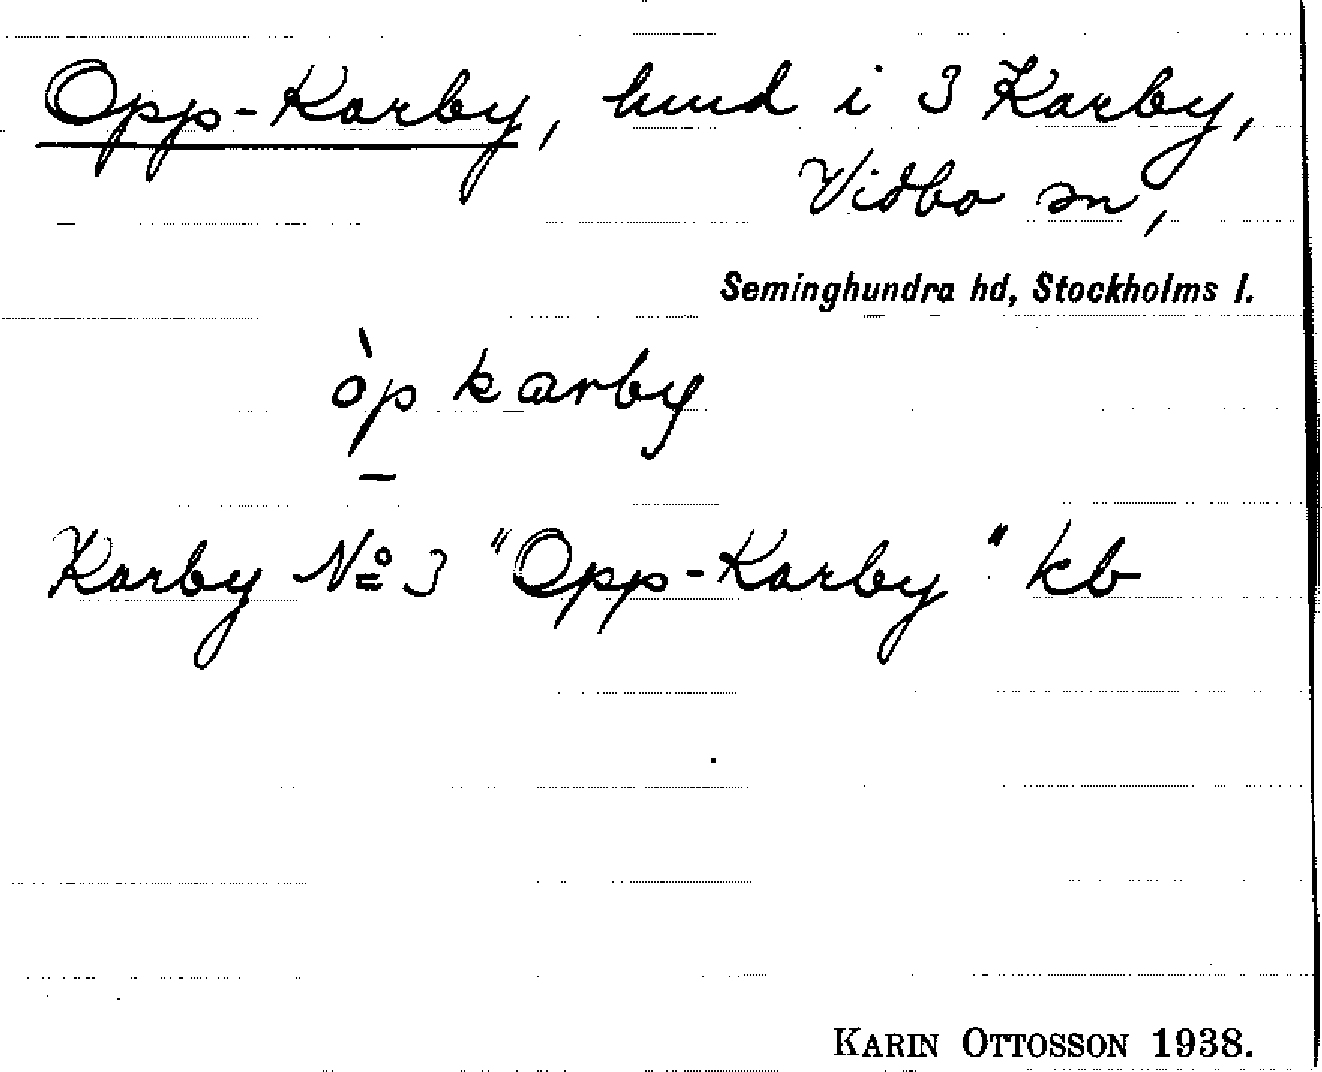 Opp-Karby, hmd i 3 Karby,
Vidbo sn,
Seminghundra hd, Stockholms l.
ò̱p karby
Karby № 3 "Opp-Karby" kb
KARIN OTTOSSON 1938.